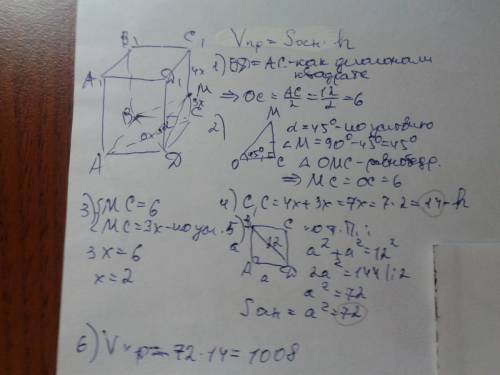 Vпр = Sосн · h
B₁ C₁
A₁ D₁
4x
M
3x
B C
A D
1) BD = AC - как диагонали
квадрата
⇒ OC = AC/2 = 12/2 = 6
2)
M
O 45° C
α = 45° - по условию
∠M = 90° - 45° = 45°
△ OMC - равнобедр.
⇒ MC = OC = 6
3) {MC = 6
MC = 3x - по усл.
3x = 6
x = 2
4) C₁C = 4x + 3x = 7x = 7 · 2 = 14 - h
5)
B C
a 12
A a D
по т. П.:
a² + a² = 12²
2a² = 144 |:2
a² = 72
Sосн = a² = 72
6) Vпр = 72 · 14 = 1008